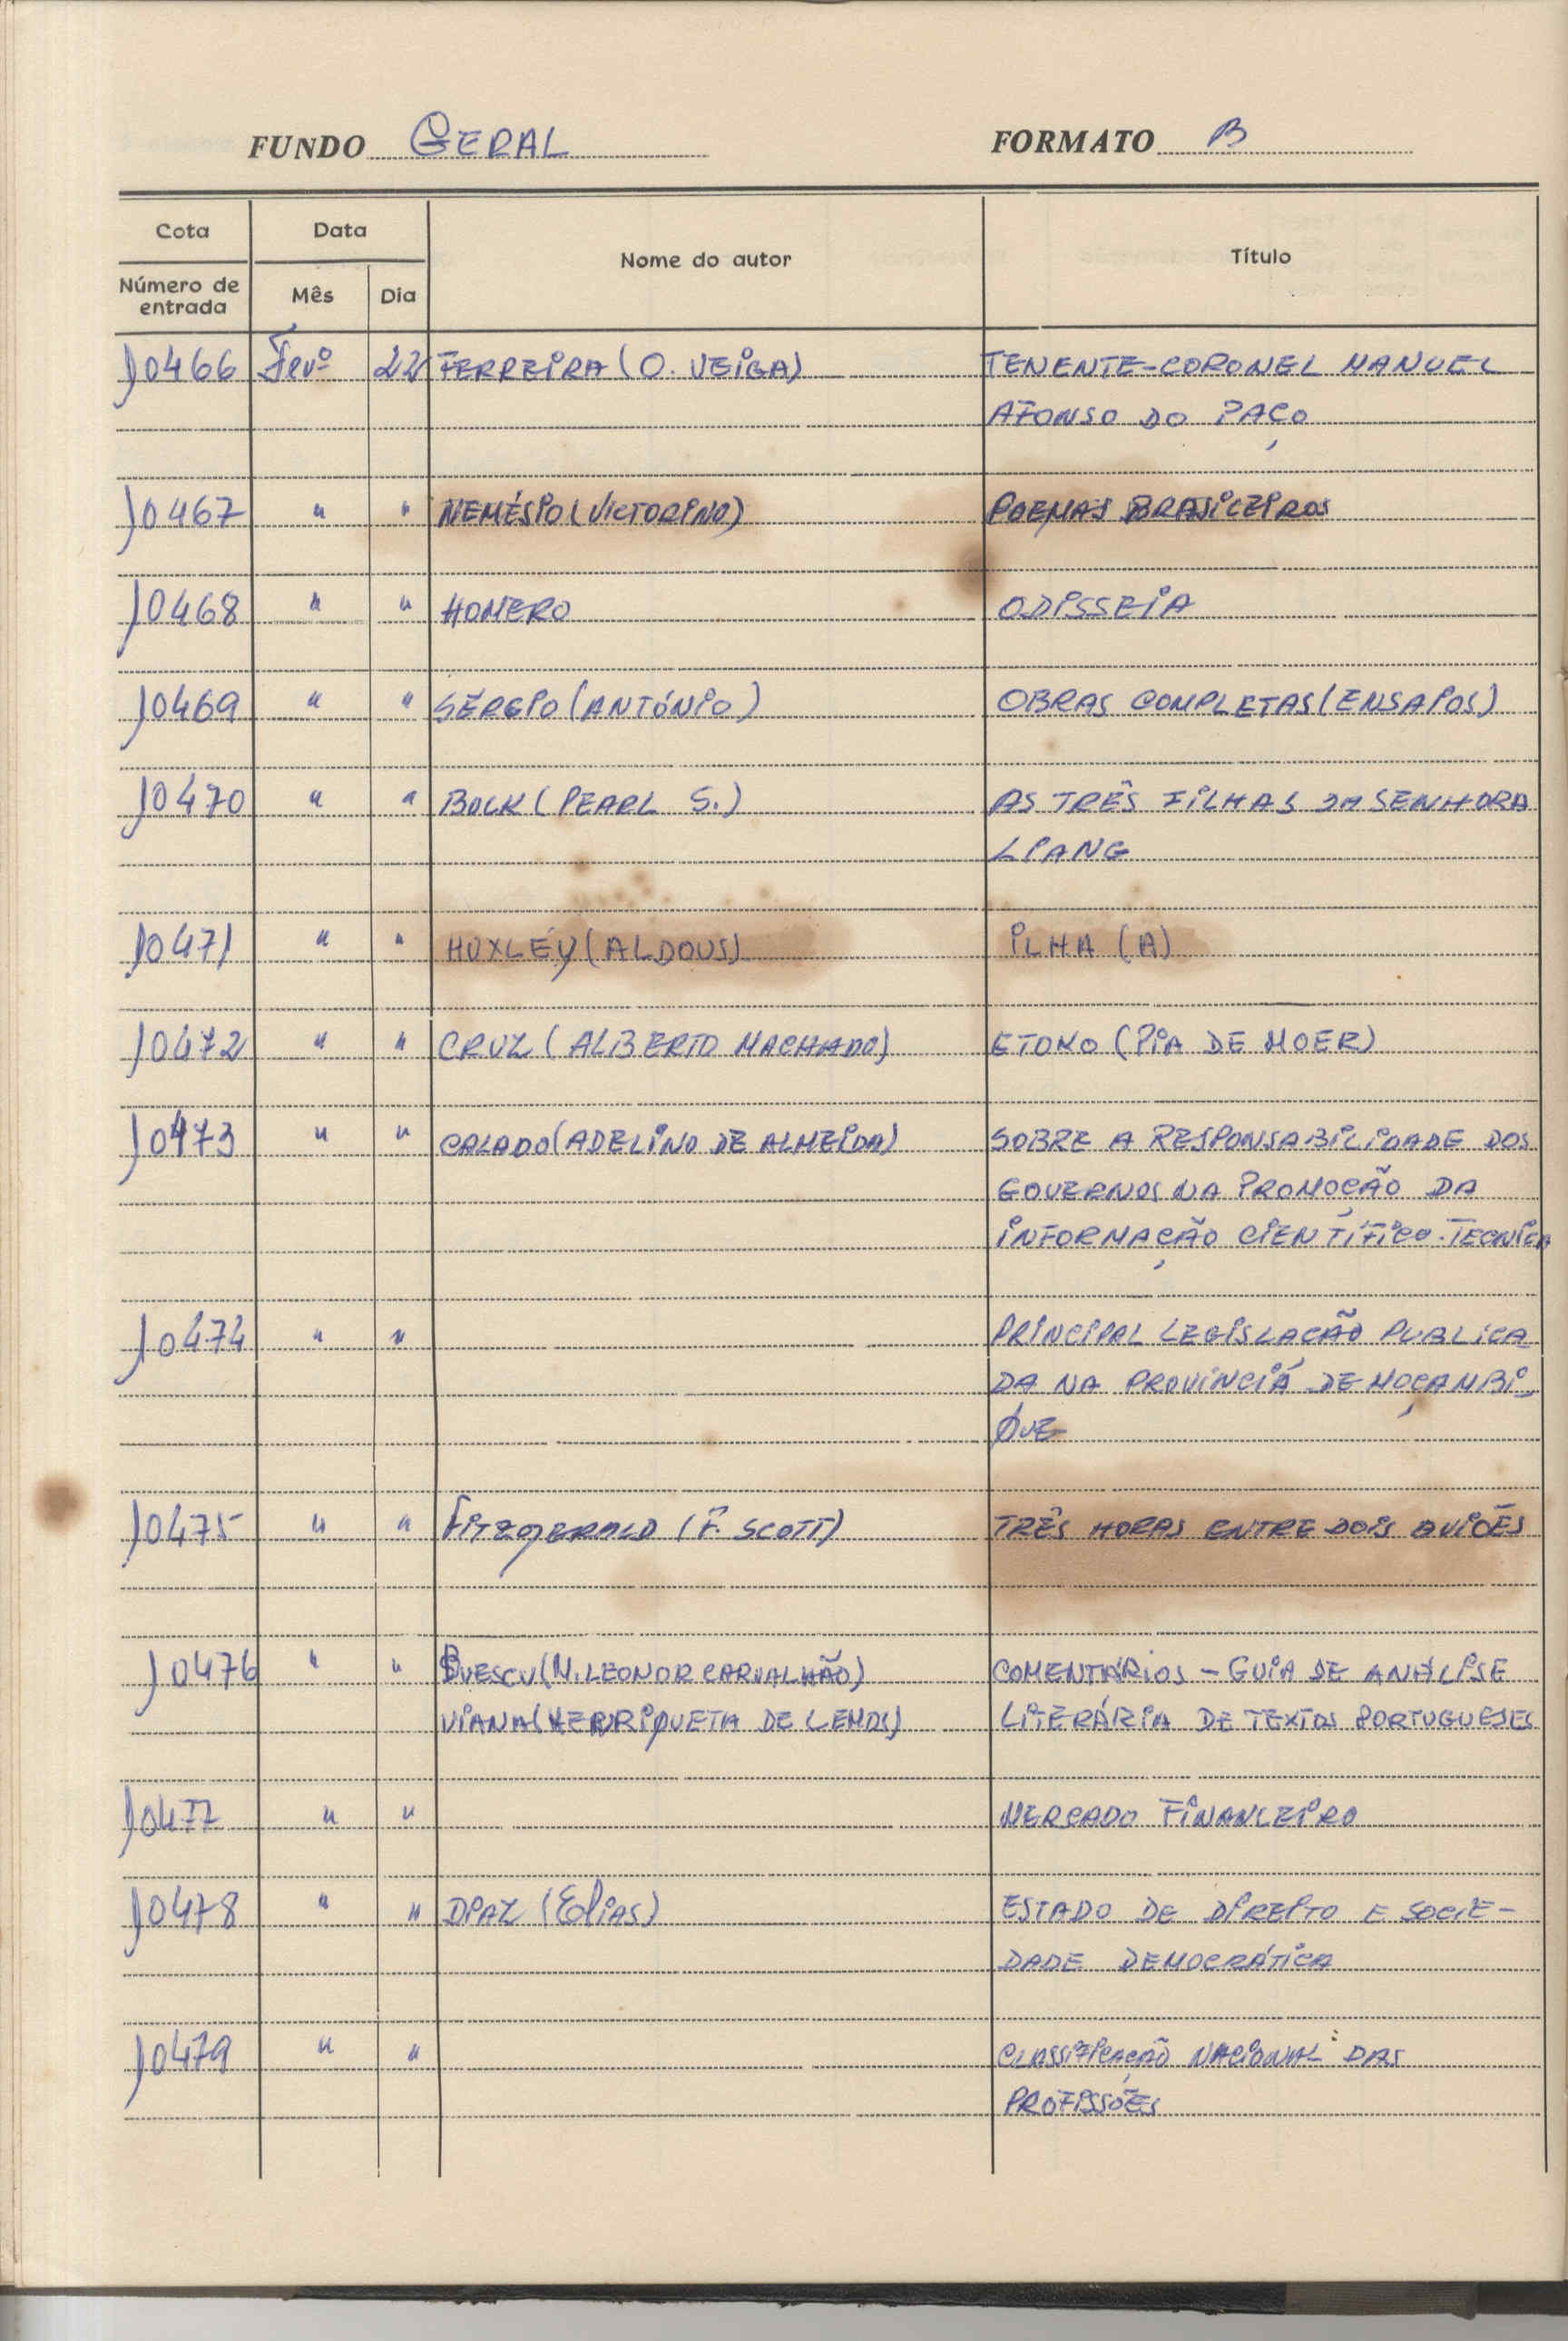 FUNDO GERAL FORMATO B
Cota Data Nome do autor Título
Número de entrada Mês Dia
10466 Fevº 22 FERREIRA (O. VEIGA) TENENTE-CORONEL MANUEL
AFONSO DO PAÇO
10467 " " NEMÉSIO (VICTORINO) POEMAS BRASILEIROS
10468 " " HOMERO ODISSEIA
10469 " " SÉRGIO (ANTÓNIO) OBRAS COMPLETAS (ENSAIOS)
10470 " " BUCK (PEARL S.) AS TRÊS FILHAS DA SENHORA
LIANG
10471 " " HUXLEY (ALDOUS) ILHA (A)
10472 " " CRUZ (ALBERTO MACHADO) ETOKO (PIA DE MOER)
10473 " " CALADO (ADELINO DE ALMEIDA) SOBRE A RESPONSABILIDADE DOS
GOVERNOS NA PROMOÇÃO DA
INFORMAÇÃO CIENTÍFICO-TECNICA
10474 " " PRINCIPAL LEGISLAÇÃO PUBLICA
DA NA PROVINCIA DE MOÇAMBI-
QUE
10475 " " FITZGERALD (F. SCOTT) TRÊS HORAS ENTRE DOIS AVIÕES
10476 " " BUESCU (M. LEONOR CARVALHÃO) COMENTÁRIOS - GUIA DE ANÁLISE
VIANA (HENRIQUETA DE LEMOS) LITERÁRIA DE TEXTOS PORTUGUESES
10477 " " MERCADO FINANCEIRO
10478 " " DIAZ (Elias) ESTADO DE DIREITO E SOCIE-
DADE DEMOCRÁTICA
10479 " " CLASSIFICAÇÃO NACIONAL DAS
PROFISSÕES